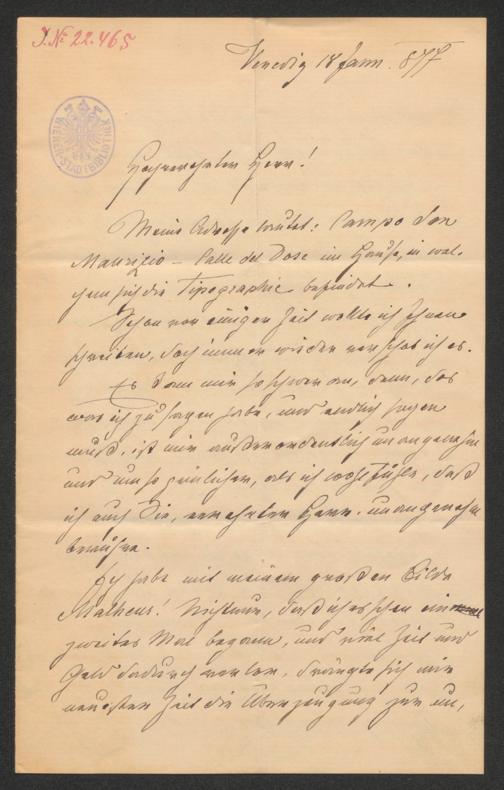 J.№ 22.465
Venedig 18 Jann. 877
WIENER STADTBIBLIOTHEK
Hochverehrter Herr!
Meine Adresse lautet: Campo San
Maurizio – Calle del Dose im Hause, in wel-
chem sich die Tipographie befindet.
Schon vor einiger Zeit wollte ich Ihnen
schreiben, doch immer wieder verschob ich es.
Es kam mir so schwer an, denn, das
was ich zu sagen habe, und endlich sagen
muß, ist mir außerordentlich unangenehm
und um so peinlicher, als ich wohl fühle, daß
ich auch Sie, verehrter Herr, unangenehm
berühre.
Ich habe mit meinem großen Bilde
Malheur! Nicht nur, daß ich es schon ein
zweites Mal begann, und viel Zeit und
Geld dadurch verlor, drängte sich mir
neuester Zeit die Überzeugung zur an,